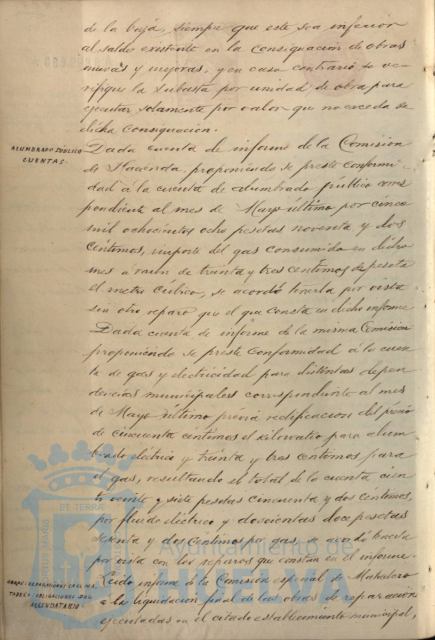 de la baja, siempre que este sea inferior
al saldo existente en la consignacion de obras
nuevas y mejoras, y en caso contrario se ve-
rifique la subasta por unidad de obra para
ejecutar solamente por valor que no exceda de
dicha consignacion.
ALUMBRADO PUBLICO
CUENTAS.
Dada cuenta de informe de la Comision
de Hacienda proponiendo se preste conformi-
dad a la cuenta de alumbrado publico corres
pondiente al mes de Mayo ultimo por cinco
mil ochocientos ocho pesetas noventa y dos
centimos, importe del gas consumido en dicho
mes a razon de treinta y tres centimos de peseta
el metro cubico, se acordó tenerla por vista
sin otro reparo que el que consta en dicho informe
Dada cuenta de informe de la misma Comision
proponiendo se preste conformidad á la cuen
ta de gas y electricidad para distintas depen
dencias municipales correspondiente al mes
de Mayo ultimo previa rectificacion del precio
de cincuenta centimos el kilovatio para alum
brado electrico y treinta y tres centimos para
el gas, resultando el total de la cuenta cien
to veinte y siete pesetas cincuenta y dos centimos,
por fluido electrico y doscientas doce pesetas
setenta y dos centimos por gas, se acordo tenerla
por vista con los reparos que constan en el informe.
OBRAS: REPARACIONES EN EL MA-
TADERO: OBLIGACIONES DEL
ARRENDATARIO.
Leido informe de la Comision especial de Matadero
a la liquidacion final de las obras de reparacion
ejecutadas en el citado establecimiento municipal,
Ayuntamiento de